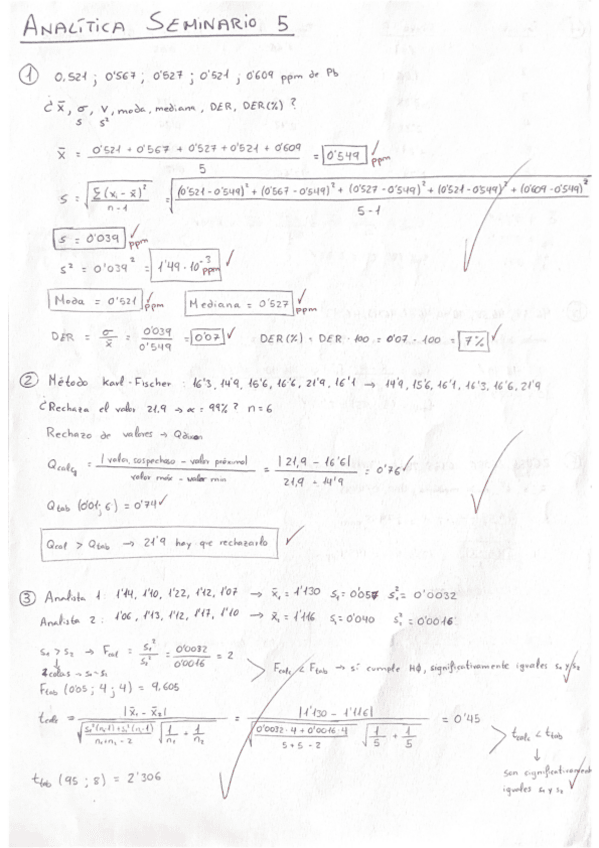 ANALÍTICA SEMINARIO 5
① 0.521 ; 0'567 ; 0'527 ; 0'521 , 0'609 ppm de Pb
¿ x̄, σ, V, moda, mediana, DER, DER(%) ?
s s²
x̄ = (0'521 + 0'567 + 0'527 + 0'521 + 0'609) / 5 = 0'549 ppm ✓
s = √(Σ(xᵢ - x̄)² / (n-1)) = √(((0'521 - 0'549)² + (0'567 - 0'549)² + (0'527 - 0'549)² + (0'521 - 0'549)² + (0'609 - 0'549)²) / (5-1))
s = 0'039 ppm ✓
s² = 0'039² = 1'49 · 10⁻³ ppm ✓
Moda = 0'521 ppm ✓ Mediana = 0'527 ppm ✓
DER = σ / x̄ = 0'039 / 0'549 = 0'07 ✓ DER(%) = DER · 100 = 0'07 · 100 = 7% ✓
② Método Karl-Fischer : 16'3, 14'9, 16'6, 16'6, 21'9, 16'1 → 14'9, 15'6, 16'1, 16'3, 16'6, 21'9
¿Rechaza el valor 21.9 → α = 99% ? n = 6
Rechazo de valores → Qdixon
Qcalc = |valor sospechoso - valor próximo| / (valor máx - valor min) = |21,9 - 16'6| / (21,9 - 14'9) = 0'76 ✓
Qtab (0'01; 6) = 0'74 ✓
Qcal > Qtab → 21'9 hay que rechazarlo ✓
③ Analista 1 : 1'14, 1'10, 1'22, 1'12, 1'07 → x̄₁ = 1'130 s₁ = 0'057 s₁² = 0'0032
Analista 2 : 1'06, 1'13, 1'12, 1'17, 1'10 → x̄₂ = 1'116 s₂ = 0'040 s₂² = 0'0016
s₁ > s₂ → Fcal = s₁² / s₂² = 0'0032 / 0'0016 = 2
2 colas → s₁ ~ s₂
Fcalc < Ftab → sí cumple HØ, significativamente iguales s₁ y s₂
Ftab (0'05 ; 4 ; 4) = 9,605
tcalc = |x̄₁ - x̄₂| / (√((s₁²(n₁-1) + s₂²(n₂-1)) / (n₁+n₂-2)) √(1/n₁ + 1/n₂)) = |1'130 - 1'116| / (√((0'0032·4 + 0'0016·4) / (5+5-2)) √(1/5 + 1/5)) = 0'45
tcalc < ttab
↓
ttab (95 ; 8) = 2'306
son significativamente
iguales x̄₁ y x̄₂